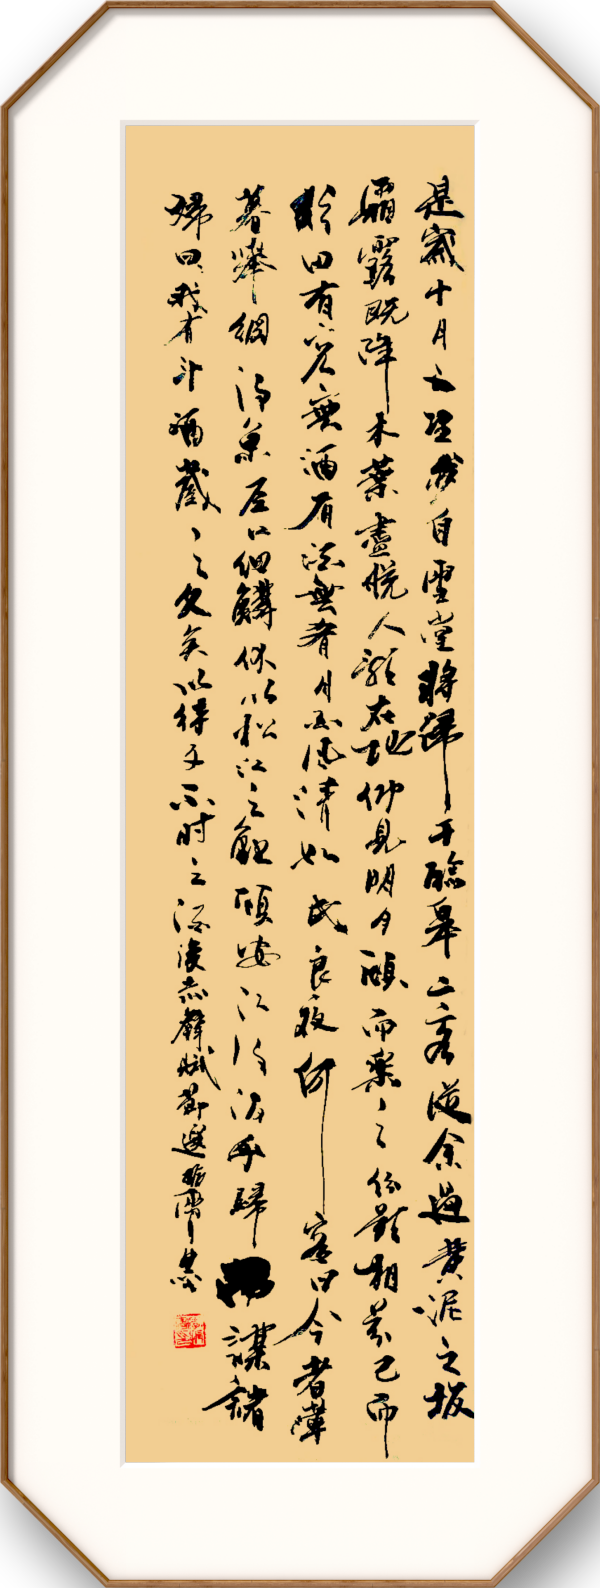 是歲十月之望步自雪堂將歸于臨皋二客從余過黃泥之坂
霜露既降木葉盡脫人影在地仰見明月顧而樂之行歌相答已而
歎曰有客無酒有酒無肴月白風清如此良夜何客曰今者薄
暮舉網得魚巨口細鱗狀似松江之鱸顧安所得酒乎歸而謀諸
婦曰我有斗酒藏之久矣以待子不時之須後赤壁賦節選